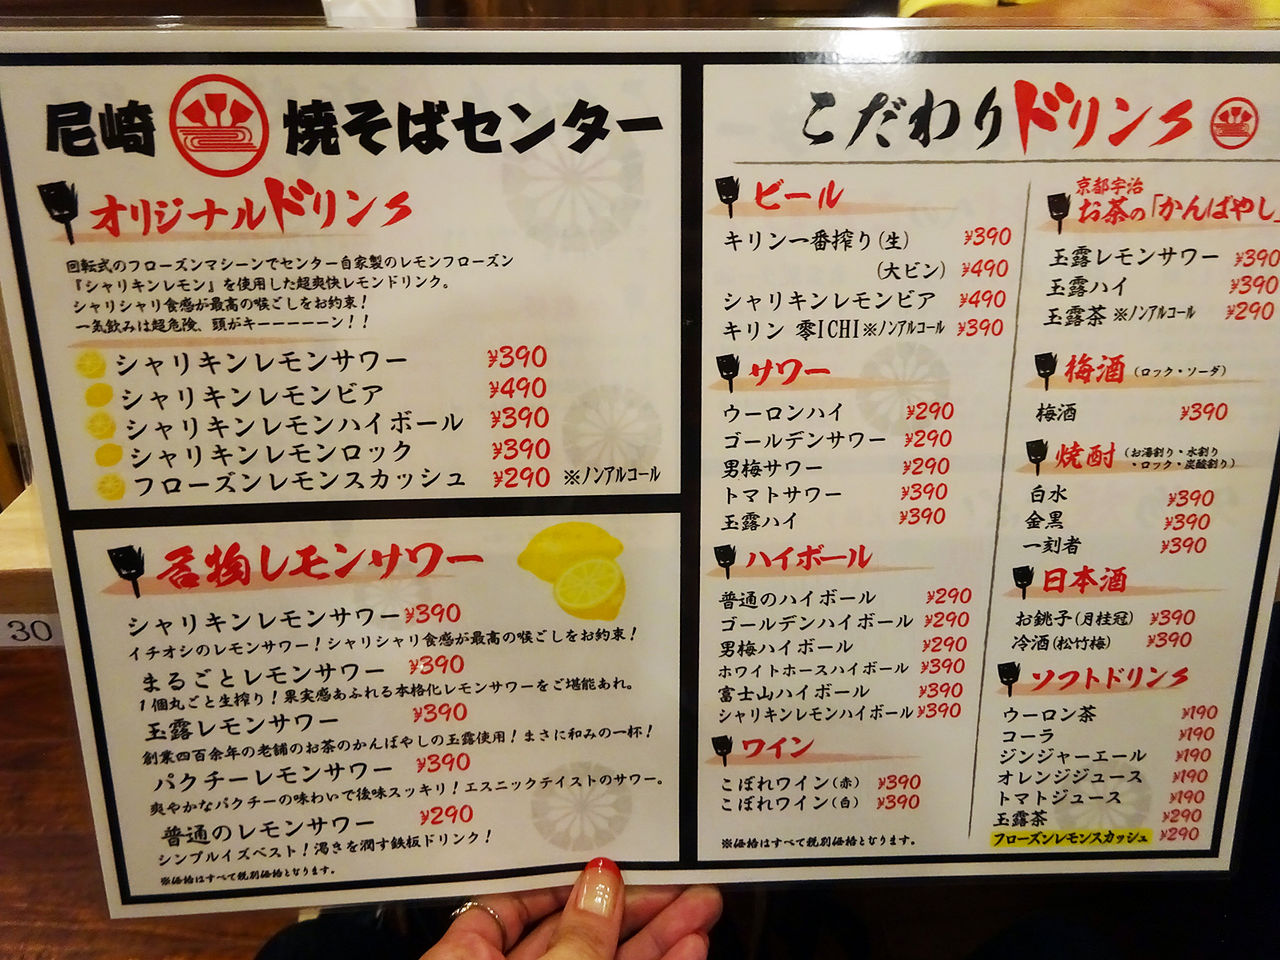 尼崎 焼そばセンター
オリジナルドリンク
回転式のフローズンマシーンでセンター自家製のレモンフローズン
『シャリキンレモン』を使用した超爽快レモンドリンク。
シャリシャリ食感が最高の喉ごしをお約束！
一気飲みは超危険、頭がキーーーーーン！！
シャリキンレモンサワー ¥390
シャリキンレモンビア ¥490
シャリキンレモンハイボール ¥390
シャリキンレモンロック ¥390
フローズンレモンスカッシュ ¥290 ※ノンアルコール
名物レモンサワー
シャリキンレモンサワー ¥390
イチオシのレモンサワー！シャリシャリ食感が最高の喉ごしをお約束！
まるごとレモンサワー ¥390
1個丸ごと生搾り！果実感あふれる本格化レモンサワーをご堪能あれ。
玉露レモンサワー ¥390
創業四百余年の老舗のお茶のかんばやしの玉露使用！まさに和みの一杯！
パクチーレモンサワー ¥390
爽やかなパクチーの味わいで後味スッキリ！エスニックテイストのサワー。
普通のレモンサワー ¥290
シンプルイズベスト！渇きを潤す鉄板ドリンク！
※価格はすべて税別価格となります。
こだわりドリンク
ビール
キリン一番搾り(生) ¥390
(大ビン) ¥490
シャリキンレモンビア ¥490
キリン 零ICHI※ノンアルコール ¥390
サワー
ウーロンハイ ¥290
ゴールデンサワー ¥290
男梅サワー ¥290
トマトサワー ¥390
玉露ハイ ¥390
ハイボール
普通のハイボール ¥290
ゴールデンハイボール ¥290
男梅ハイボール ¥290
ホワイトホースハイボール ¥390
富士山ハイボール ¥390
シャリキンレモンハイボール ¥390
ワイン
こぼれワイン(赤) ¥390
こぼれワイン(白) ¥390
※価格はすべて税別価格となります。
京都宇治
お茶の「かんばやし」
玉露レモンサワー ¥390
玉露ハイ ¥390
玉露茶 ※ノンアルコール ¥290
梅酒 (ロック・ソーダ)
梅酒 ¥390
焼酎 (お湯割り・水割り
・ロック・炭酸割り)
白水 ¥390
金黒 ¥390
一刻者 ¥390
日本酒
お銚子(月桂冠) ¥390
冷酒(松竹梅) ¥390
ソフトドリンク
ウーロン茶 ¥190
コーラ ¥190
ジンジャーエール ¥190
オレンジジュース ¥190
トマトジュース ¥190
玉露茶 ¥290
フローズンレモンスカッシュ ¥290
30